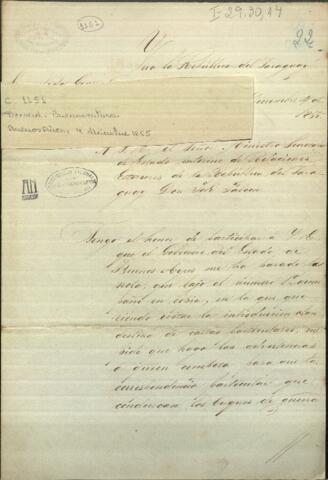 I-29,30,14
1151
22
V
la República del Paraguay
C 1151
Buenaventura
Buenos Aires, 4 diciembre 1855
A S. E. el Señor Ministro Secretario
de Estado interino de Relaciones
Exteriores de la República del Para
guay Don José Falcon
Tengo el honor de participar á V. E.
que el Gobierno del Estado de
Buenos Ayres me ha pasado la
nota, que bajo el número 1 acom
paño en copia, en la que que
riendo evitar la introduccion clan
destina de cartas particulares, me
pide que haga las advertencias
á quien competa para que la
correspondencia particular que
conduzcan los buques de guerra